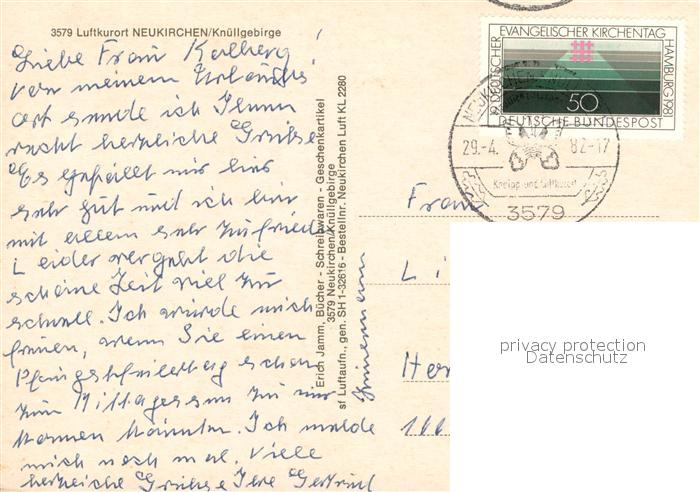 3579 Luftkurort NEUKIRCHEN/Knüllgebirge
Liebe Frau Kalberg!
Von meinem Urlaubs-
ort sende ich Ihnen
recht herzliche Grüsse
Es gefällt mir hier
sehr gut und ich bin
mit allem sehr zufrieden
Leider vergeht die
schöne Zeit viel zu
schnell. Ich würde mich
freuen, wenn Sie einen
Pfingstfeiertag schon
zum Mittagessen zu mir
kommen könnten. Ich melde
mich noch mal. Viele
herzliche Grüsse Ihre Gertrud
Erich Jamm, Bücher - Schreibwaren - Geschenkartikel
3579 Neukirchen/Knüllgebirge
sf Luftaufn., gen. SH 1-32616 - Bestellnr. Neukirchen Luft KL 2280
19. DEUTSCHER EVANGELISCHER KIRCHENTAG HAMBURG 1981
50
DEUTSCHE BUNDESPOST
29.-4. 82-17
Kneipp- und Luftkurort
3579
Frau
Li
Her
privacy protection
Datenschutz